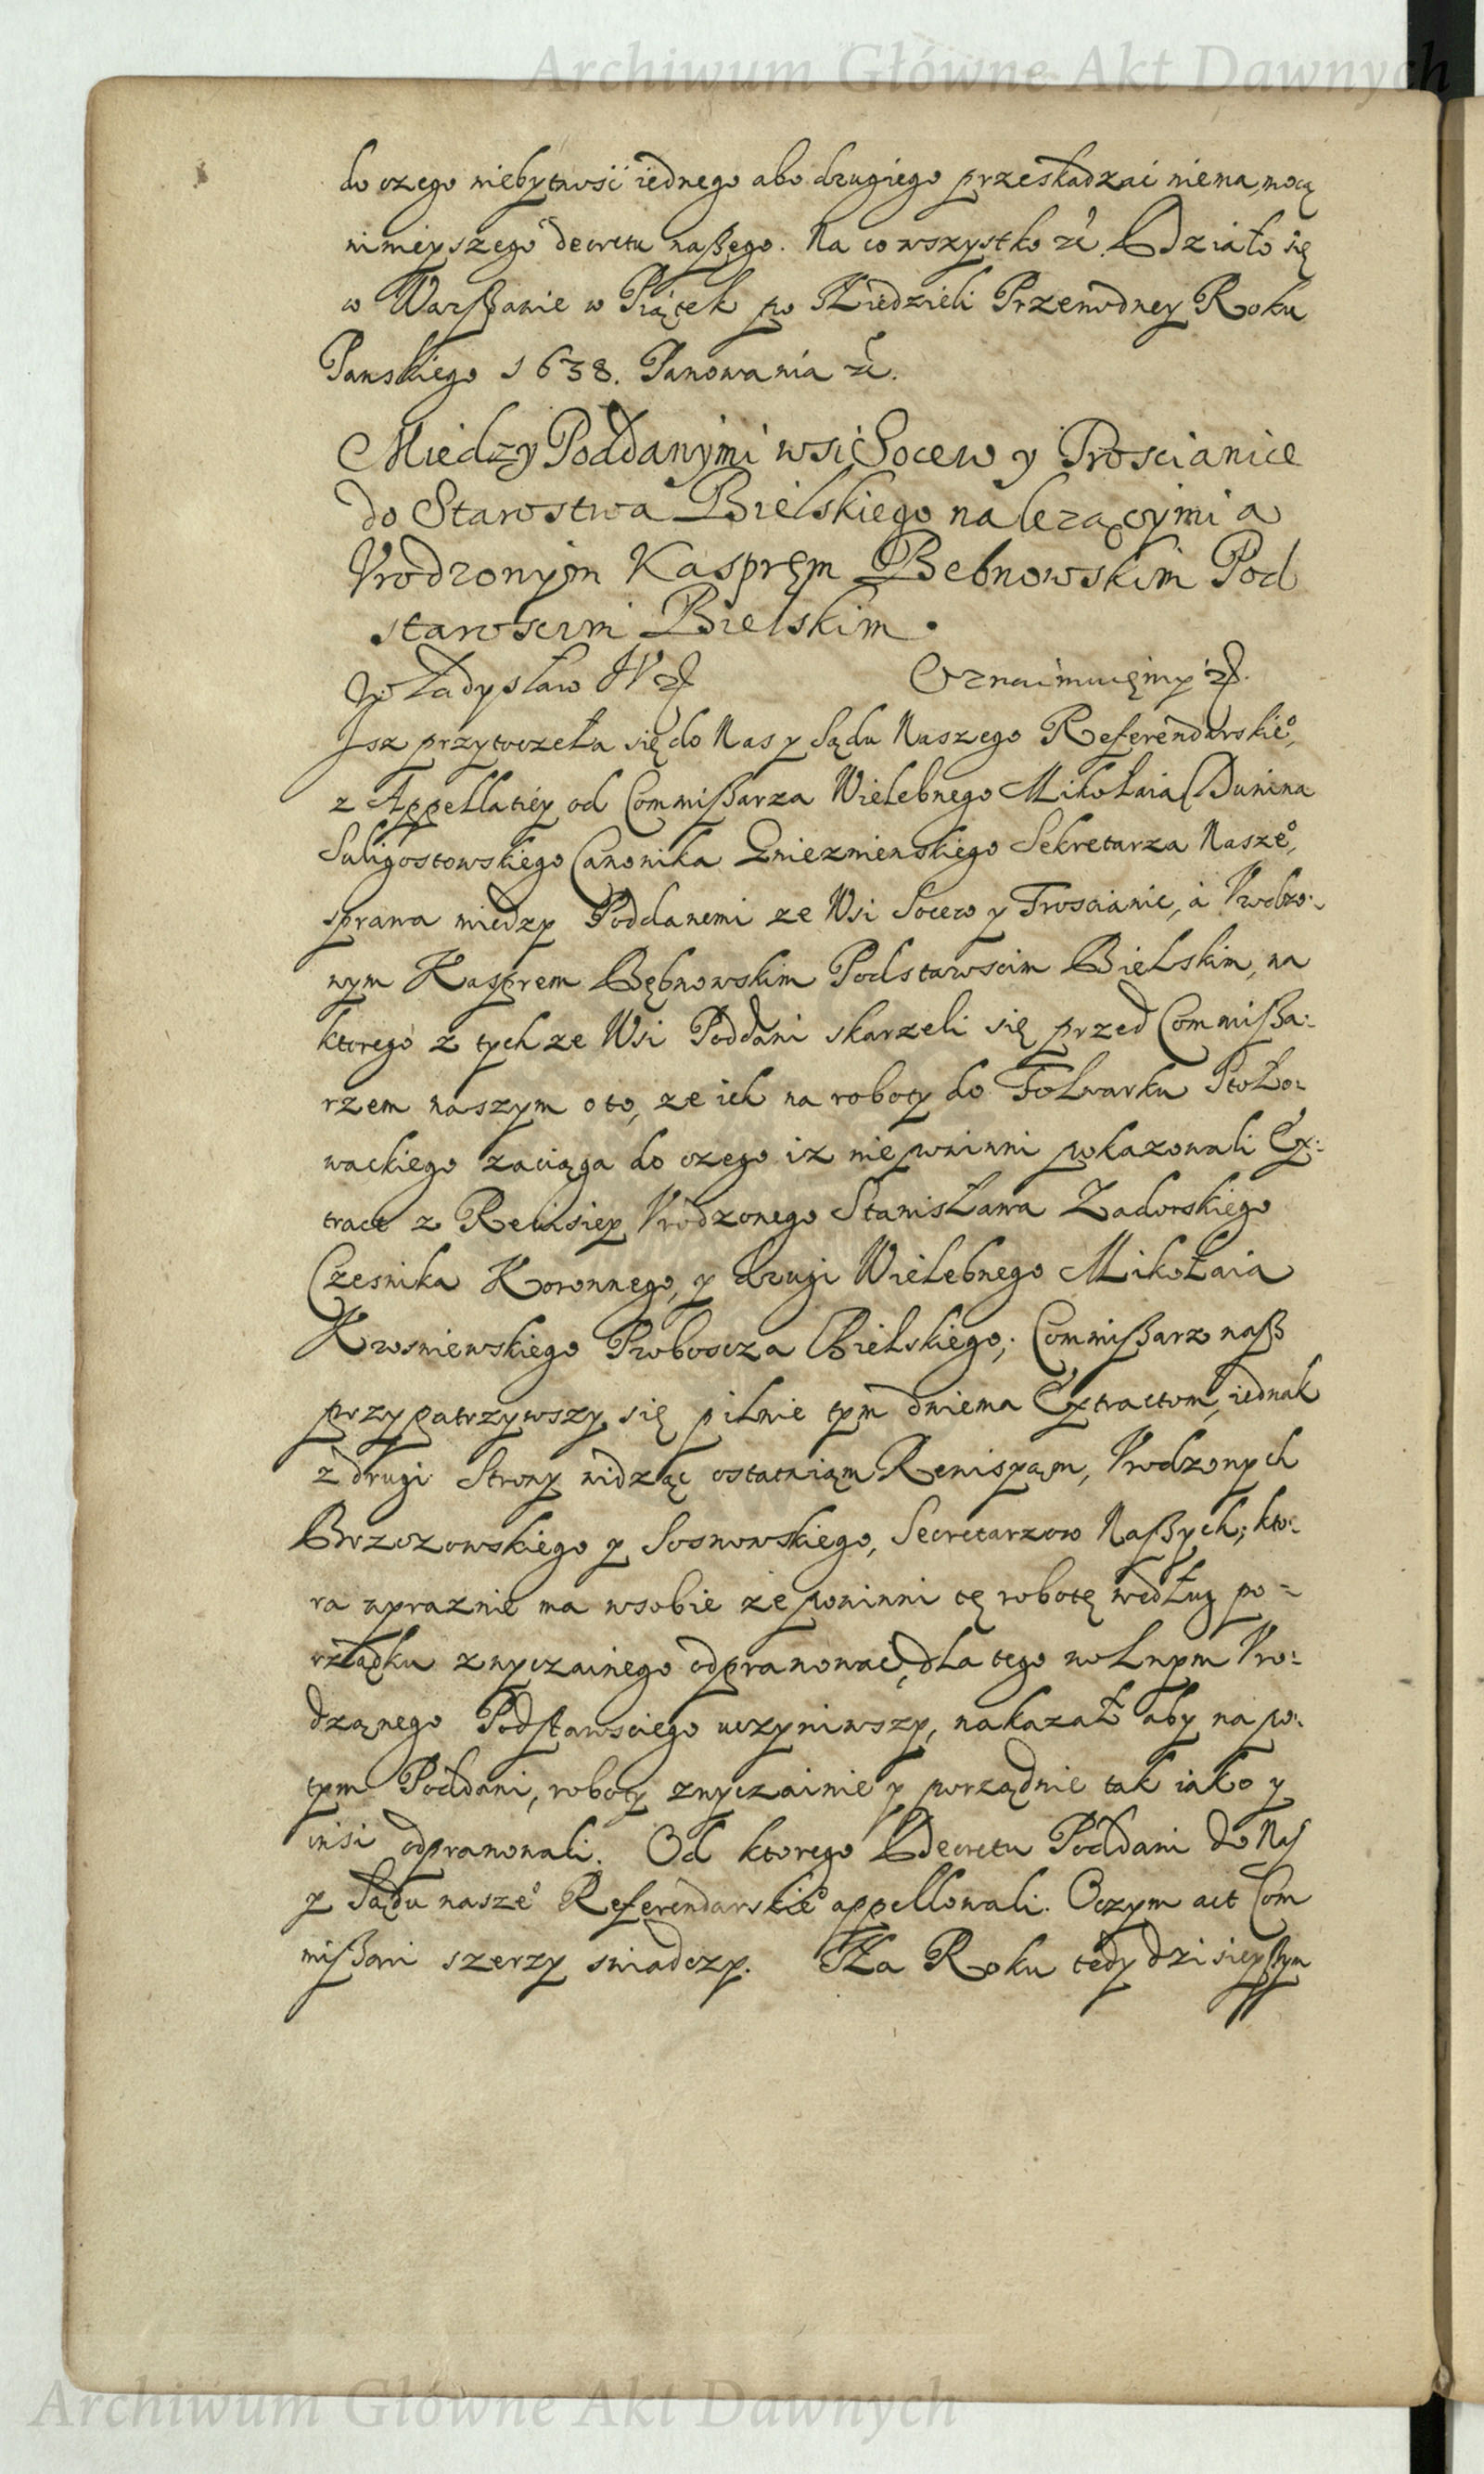 Archiwum Główne Akt Dawnych
do czego niebytność iednego abo drugiego przeskadzać niema, mocą
ninieyszego decretu naßęgo. Na co wszystko etc. Działo się
w Warßawie w Piątek po Niedzieli Przewodney Roku
Panskiego 1638. Panowania etc.
Miedzy Poddanymi wsi Socew y Trosćianice
do Starostwa Bielskiego nalezącymi a
Vrodzonym Kasprem Bebnowskim Pod
starosćim Bielskim.
Władysław IV etc. Oznaimuięmy etc.
Isz przytoczeła się do Nas y Sądu Naszego Referendarskieo,
z Appellatiey od Commißarza Wielebnego Mikołaia Dunina
Suligostowskiego Canonika Gnieznienskiego Sekretarza Naszeo,
sprawa miedzy Poddanemi ze Wsi Socew y Trosćianic, a Vrodzo:
nym Kasprem Bębnowskim Podstaroscim Bielskim, na
ktorego z tychze Wsi Poddani skarzeli się przed Commißa:
rzem naszym oto, ze ich na roboty do Folwarku Ploło:
wackiego zaciąga do czego iz nie powinni pokazowali Ex:
tract z Rewisiey Vrodzonego Stanisława Zadorskiego
Czesnika Koronnego, y drugi Wielebnego Mikołaia
Krosniewskiego Proboscza Bielskiego; Commißarz naß
przypatrzywszy się pilnie tym dwiema Extractom, iednak
z drugi Strony widząc ostatniąm Rewisyąm, Vrodzonych
Brzozowskiego y Sosnowskiego, Secretarzow Naßych; kto:
ra wyraznie ma wsobie ze powinni tę robotę według po:
rządku zwyczainego odprawować, dla tego wolnym Vro:
dzonego Podstarosciego uczyniwszy, nakazał aby na po:
tym Poddani, roboty zwyczainie y porządnie tak iako y
insi odprawowali. Od ktorego Decretu Poddani do Nas
y Sądu naszeo Referendarskieo appellowali. Oczym act Com
mißari szerzy swiadczy. Na Roku tedy dzisieyszym
Archiwum Główne Akt Dawnych